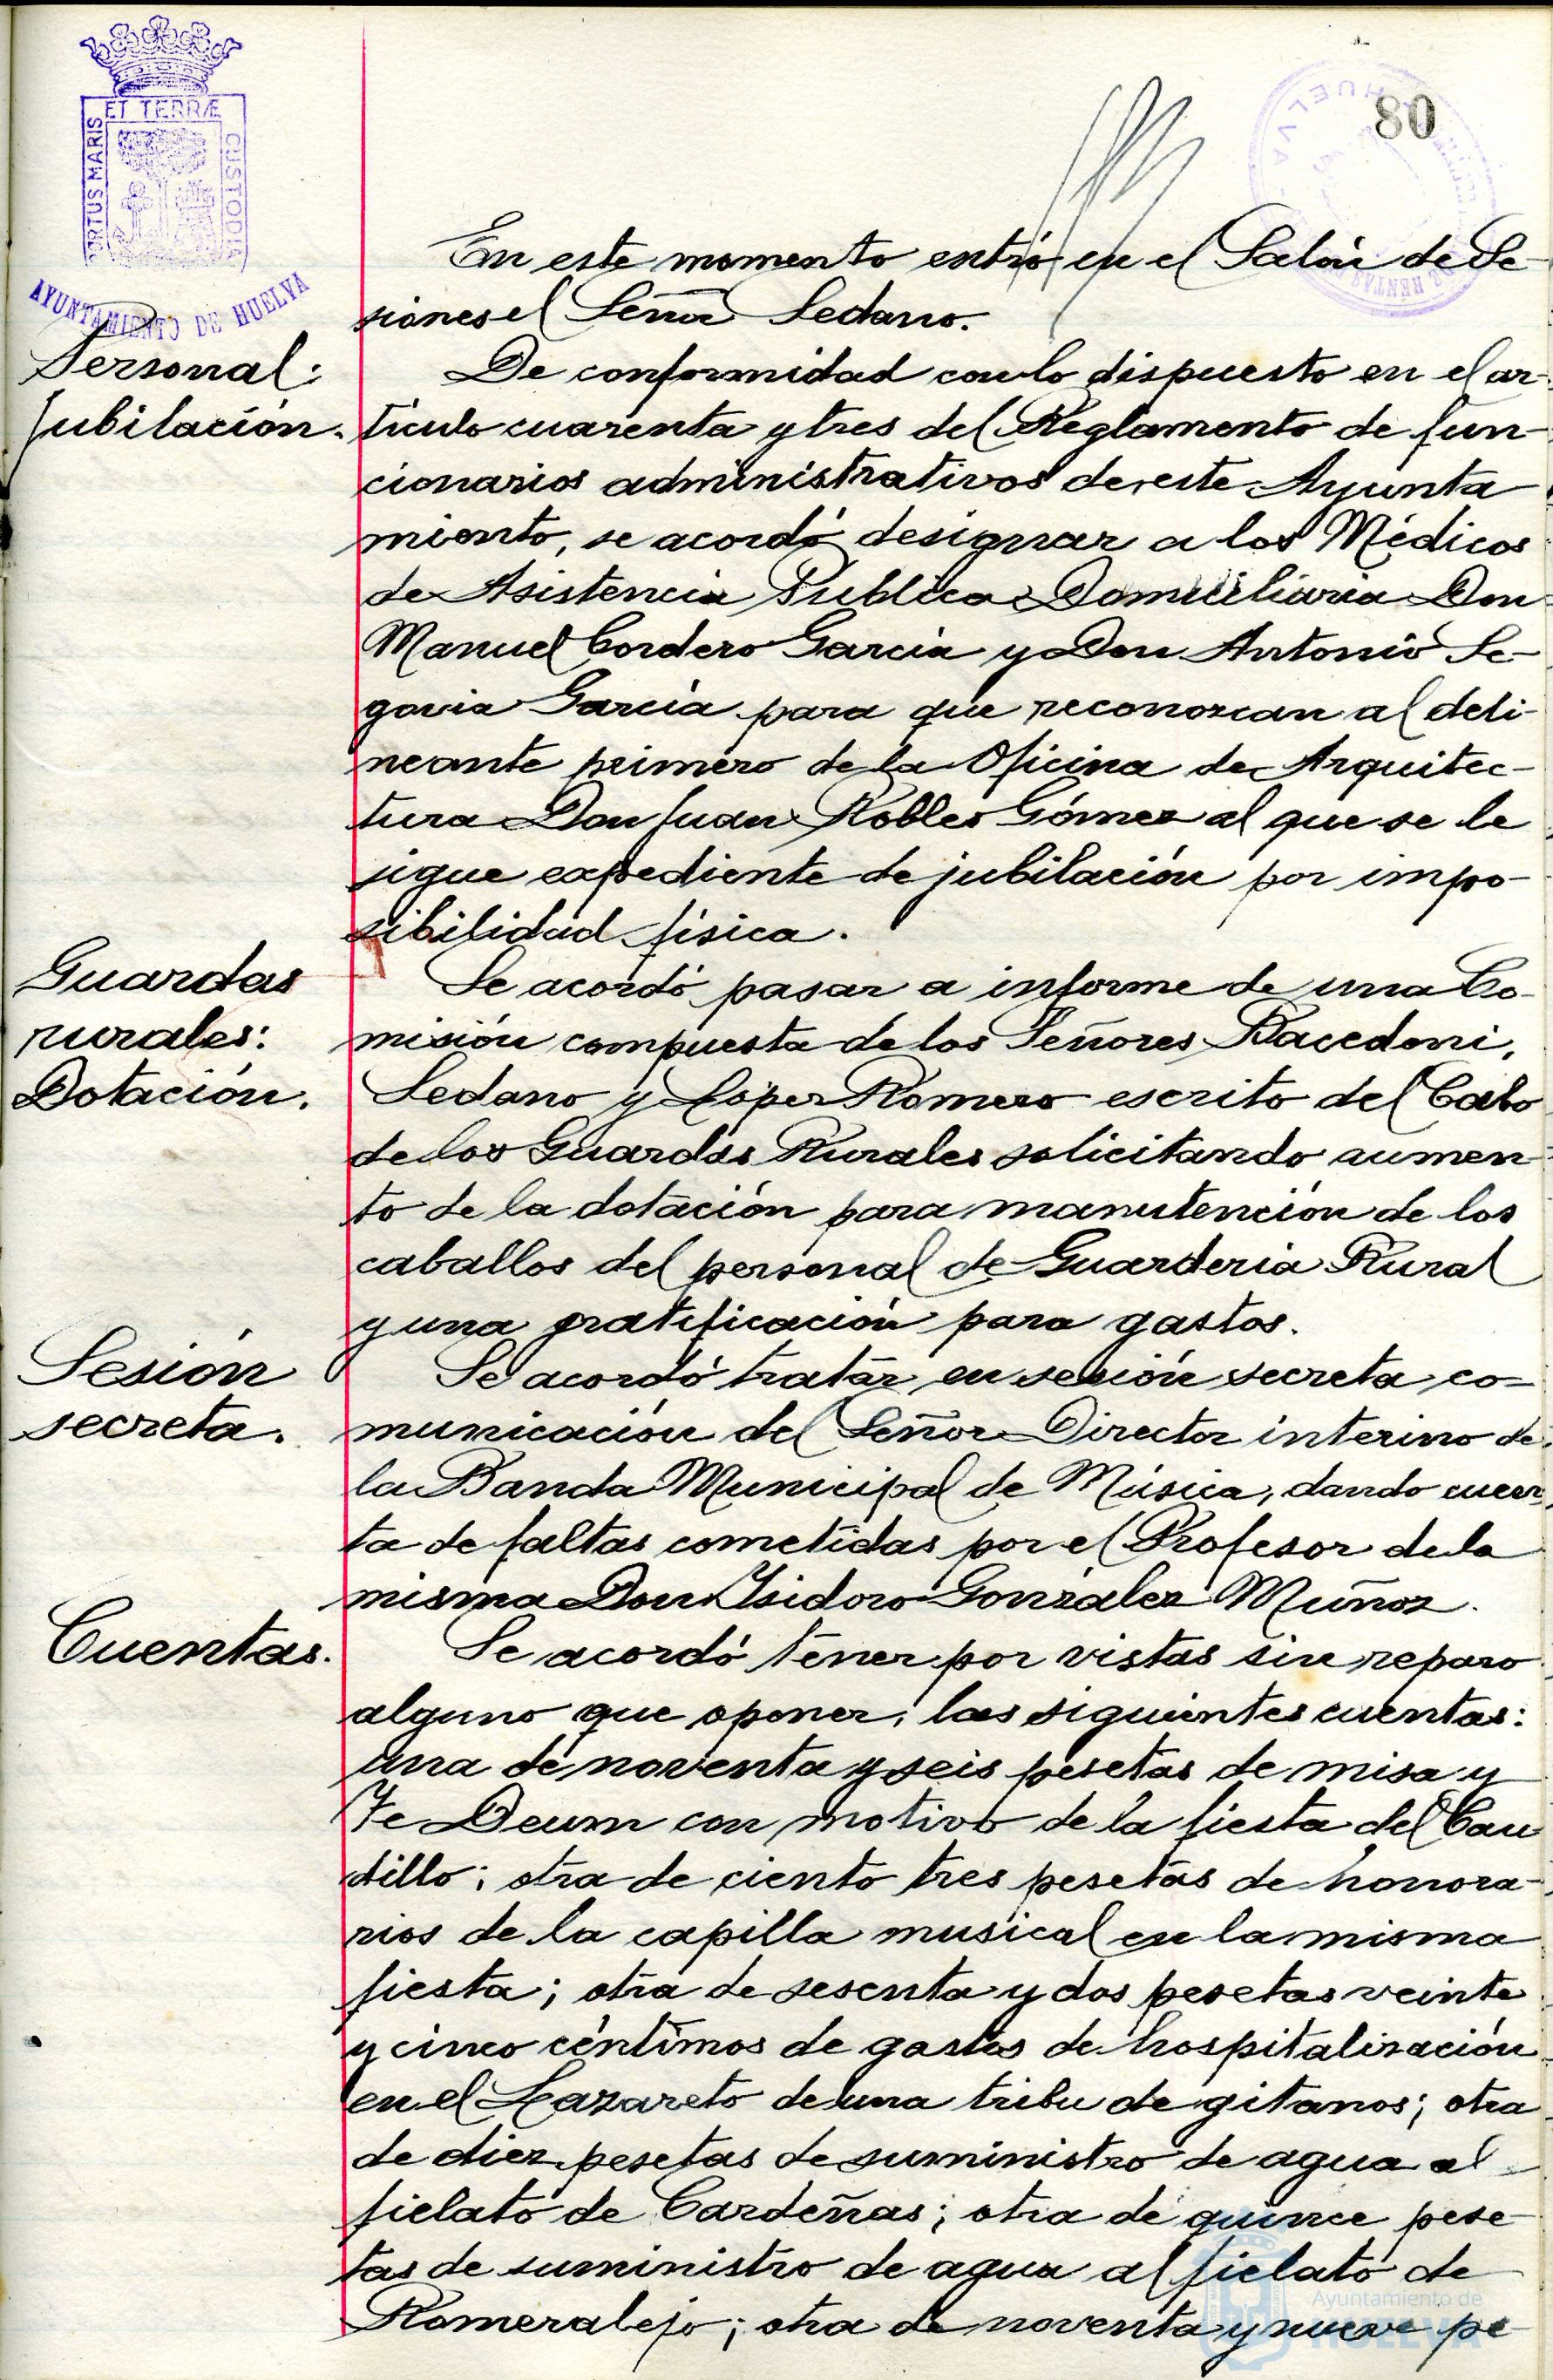 ET TERRÆ
PORTUS MARIS
CUSTODIA
AYUNTAMIENTO DE HUELVA
80
HUELVA
RENTAS
En este momento entró en el Salón de Se-
siones el Señor Sedano.
Personal:
Jubilación.
De conformidad con lo dispuesto en el ar-
tículo cuarenta y tres del Reglamento de fun-
cionarios administrativos de este Ayunta
miento, se acordó designar a los Médicos
de Asistencia Publica Domiciliaria Don
Manuel Cordero García y Don Antonio Se-
govia García para que reconozcan al deli-
neante primero de la Oficina de Arquitec-
tura Don Juan Robles Gómez al que se le
sigue expediente de jubilación por impo-
sibilidad física.
Guardas
rurales:
Dotación.
Se acordó pasar a informe de una Co-
misión compuesta de los Señores Bacedoni,
Sedano y López Romero escrito del Cabo
de los Guardas Rurales solicitando aumen
to de la dotación para manutención de los
caballos del personal de Guarderia Rural
y una gratificación para gastos.
Sesión
secreta.
Se acordó tratar en sesión secreta co-
municación del Señor Director interino de
la Banda Municipal de Música, dando cuen
ta de faltas cometidas por el Profesor de la
misma Don Ysidoro González Muñoz.
Cuentas.
Se acordó tener por vistas sin reparo
alguno que oponer, las siguientes cuentas:
una de noventa y seis pesetas de misa y
Te Deum con motivo de la fiesta del Cau
dillo; otra de ciento tres pesetas de honora-
rios de la capilla musical en la misma
fiesta; otra de sesenta y dos pesetas veinte
y cinco céntimos de gastos de hospitalización
en el Lazareto de una tribu de gitanos; otra
de diez pesetas de suministro de agua al
fielato de Cardeñas; otra de quince pese-
tas de suministro de agua al fielato de
Romeralejo; otra de noventa y nueve pe-
Ayuntamiento de
HUELVA